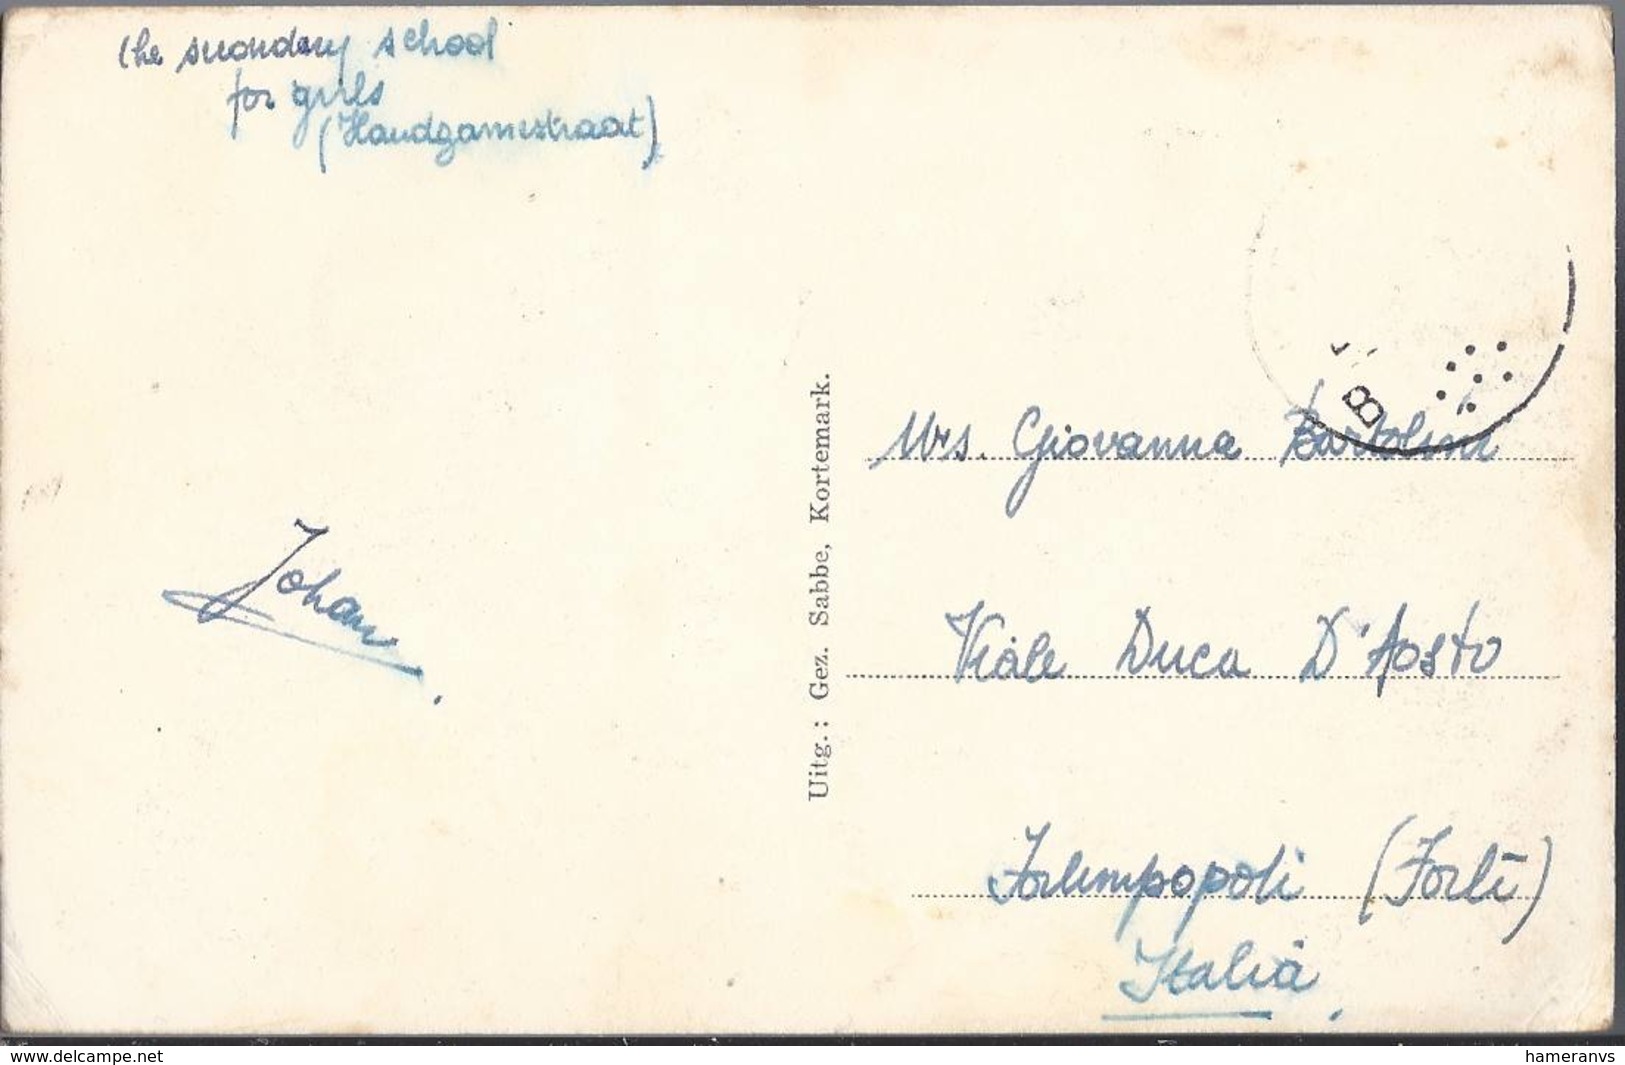 the secondary school
for girls
(Handzamestraat)
Johan.
Uitg.: Gez. Sabbe, Kortemark.
B
Mrs. Giovanna Bartolini
Viale Duca D'Aosto
Forlimpopoli (Forlì)
Italia.
www.delcampe.net
hameranvs